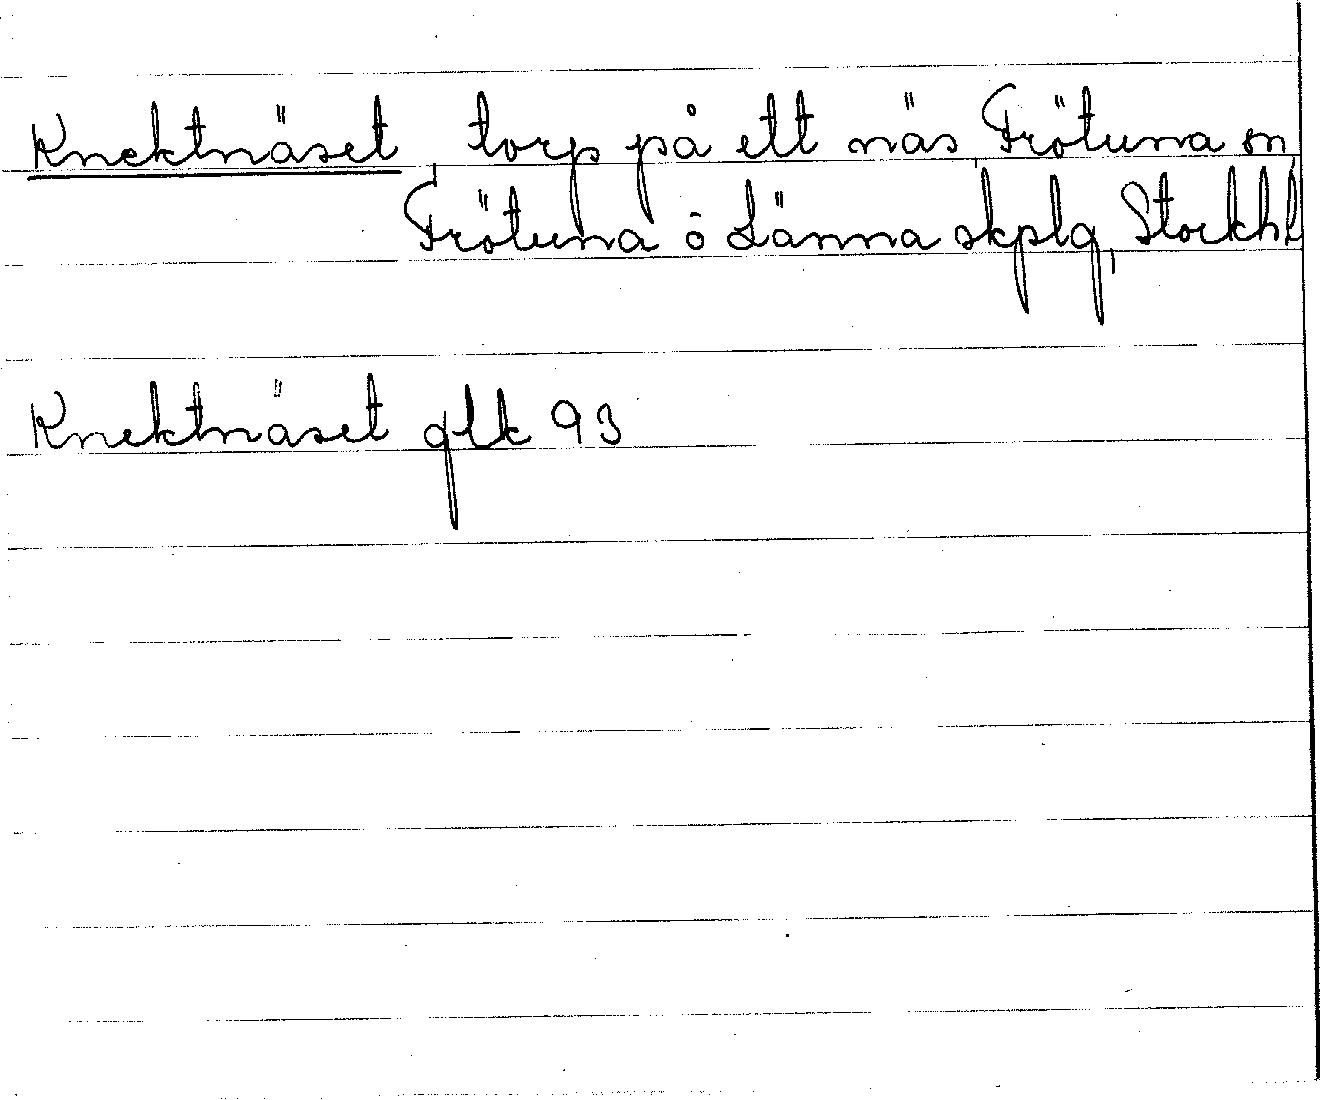 Knektnäset, torp på ett näs, Frötuna sn
Frötuna o Länna skplg, Stockh L
Knektnäset glk 93